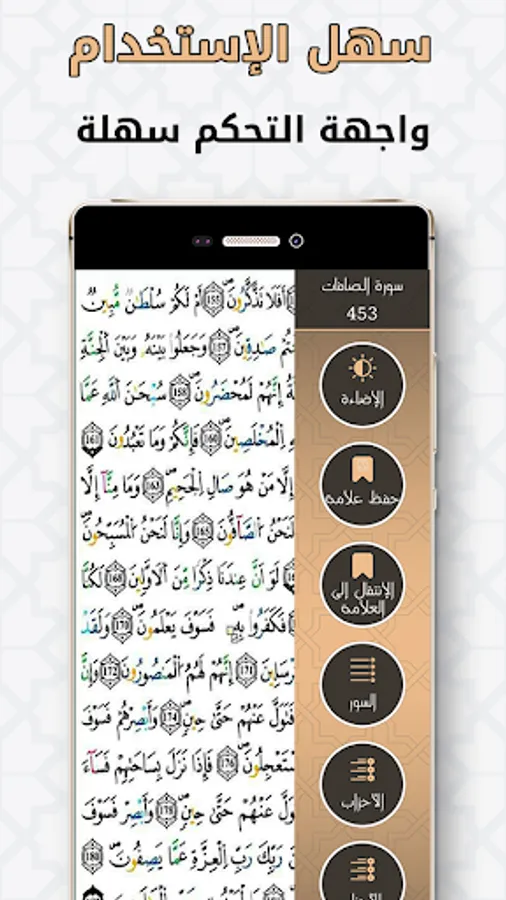 سهل الإستخدام
واجهة التحكم سهلة
سورة الصافات
453
الإضاءة
حفظ علامة
الإنتقال إلى
العلامة
السور
الأحزاب
أَفَلَا تَذَكَّرُونَ 155 أَمْ لَكُمْ سُلْطَٰنٌ مُّبِينٌ
نتُمْ صَٰدِقِينَ 157 وَجَعَلُوا۟ بَيْنَهُۥ وَبَيْنَ ٱلْجِنَّةِ
ةُ إِنَّهُمْ لَمُحْضَرُونَ 158 سُبْحَٰنَ ٱللَّهِ عَمَّا
هِ ٱلْمُخْلَصِينَ 160 فَإِنَّكُمْ وَمَا تَعْبُدُونَ 161
إِلَّا مَنْ هُوَ صَالِ ٱلْجَحِيمِ 163 وَمَا مِنَّآ إِلَّا
لَنَحْنُ ٱلصَّآفُّونَ 165 وَإِنَّا لَنَحْنُ ٱلْمُسَبِّحُونَ
لَوْ أَنَّ عِندَنَا ذِكْرًا مِّنَ ٱلْأَوَّلِينَ 168 لَكُنَّا
فَكَفَرُوا۟ بِهِۦ فَسَوْفَ يَعْلَمُونَ 170 وَلَقَدْ
رْسَلِينَ 171 إِنَّهُمْ لَهُمُ ٱلْمَنصُورُونَ 172 وَإِنَّ
فَتَوَلَّ عَنْهُمْ حَتَّىٰ حِينٍ 174 وَأَبْصِرْهُمْ فَسَوْفَ
سْتَعْجِلُونَ 176 فَإِذَا نَزَلَ بِسَاحَتِهِمْ فَسَآءَ
وَلَّ عَنْهُمْ حَتَّىٰ حِينٍ 178 وَأَبْصِرْ فَسَوْفَ
نَ رَبِّكَ رَبِّ ٱلْعِزَّةِ عَمَّا يَصِفُونَ 180